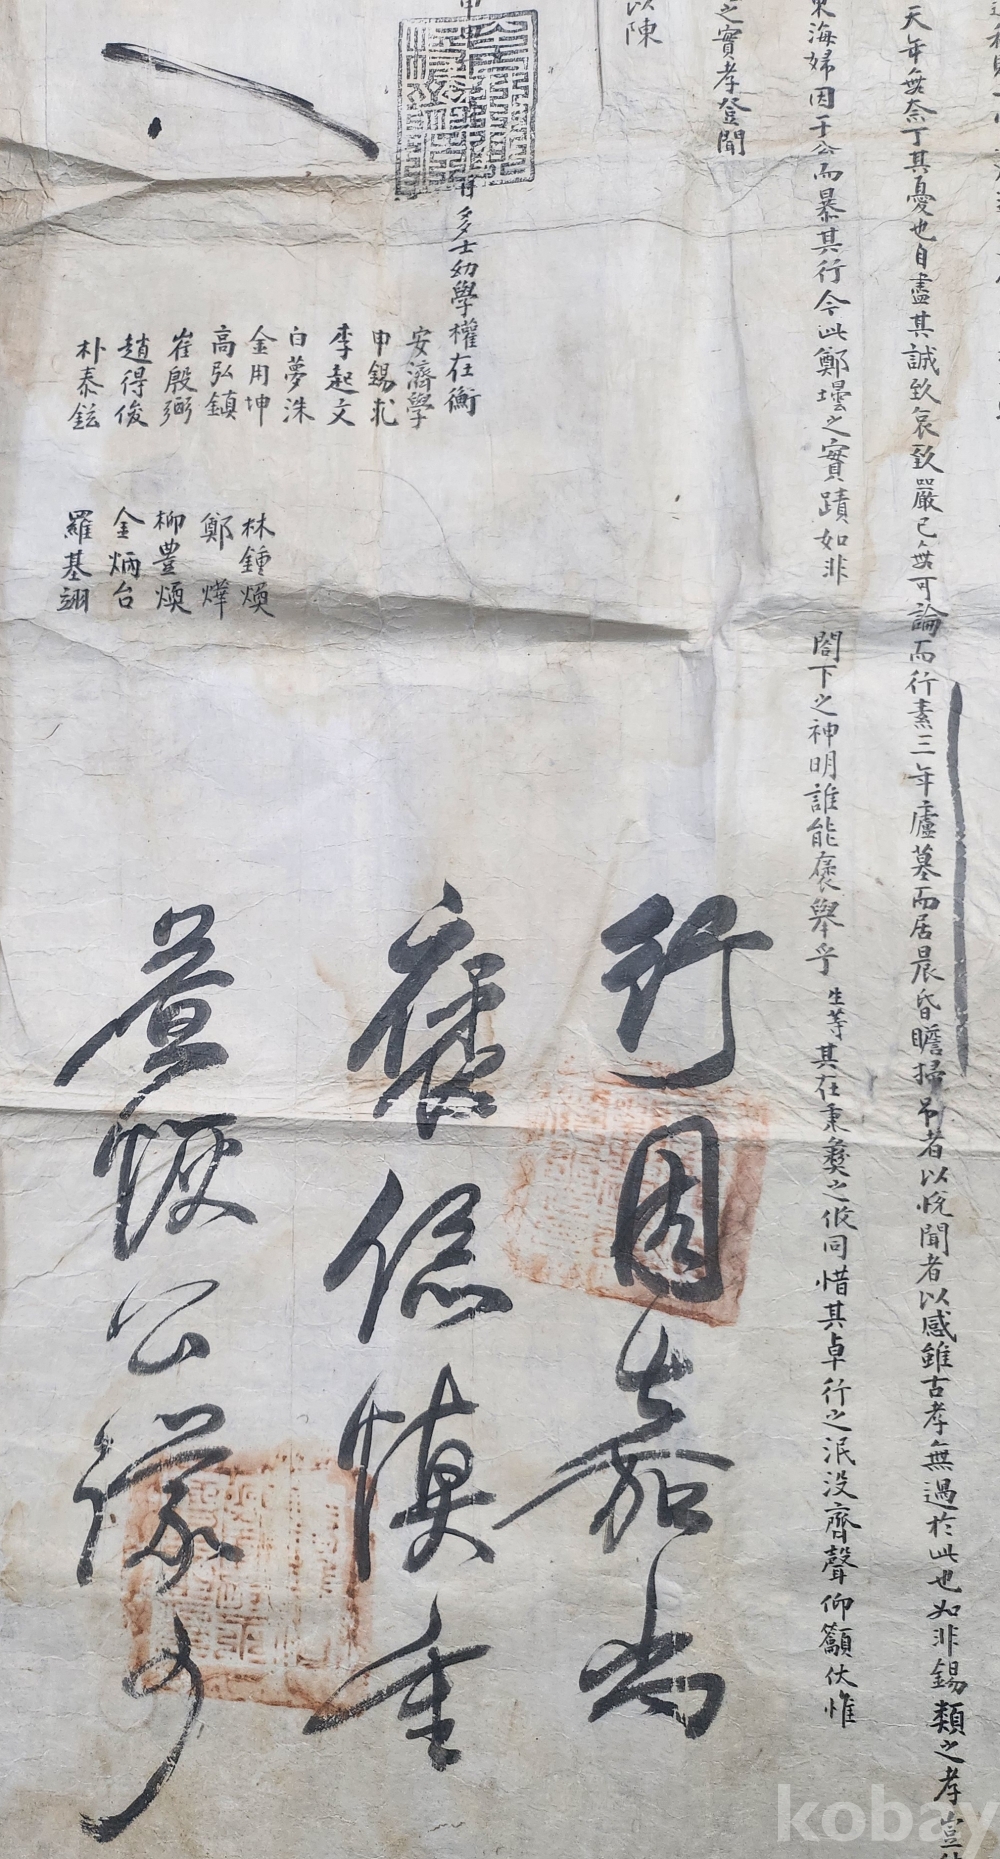 天年無奈丁其憂也自盡其誠致哀致嚴已無可論而行素三年廬墓而居晨昏瞻掃吊者以悅聞者以感雖古孝無過於此也如非錫類之孝豈
東海婦因于公而暴其行今此鄭墰之實蹟如非 閤下之神明誰能褒舉乎 生等其在秉彝之攸同惜其卓行之泯沒齊聲仰籲伏惟
之實孝登聞
以陳
月 多士幼學權在衡
安濟學
申錫
李起文
白夢洙
金用坤
高弘鎮
崔殷弼
趙得俊
朴泰鉉
林鍾煥
鄭燁
柳豊煥
金炳台
羅基翊
行因嘉尚
褒 慎重
並 公議事
kobay